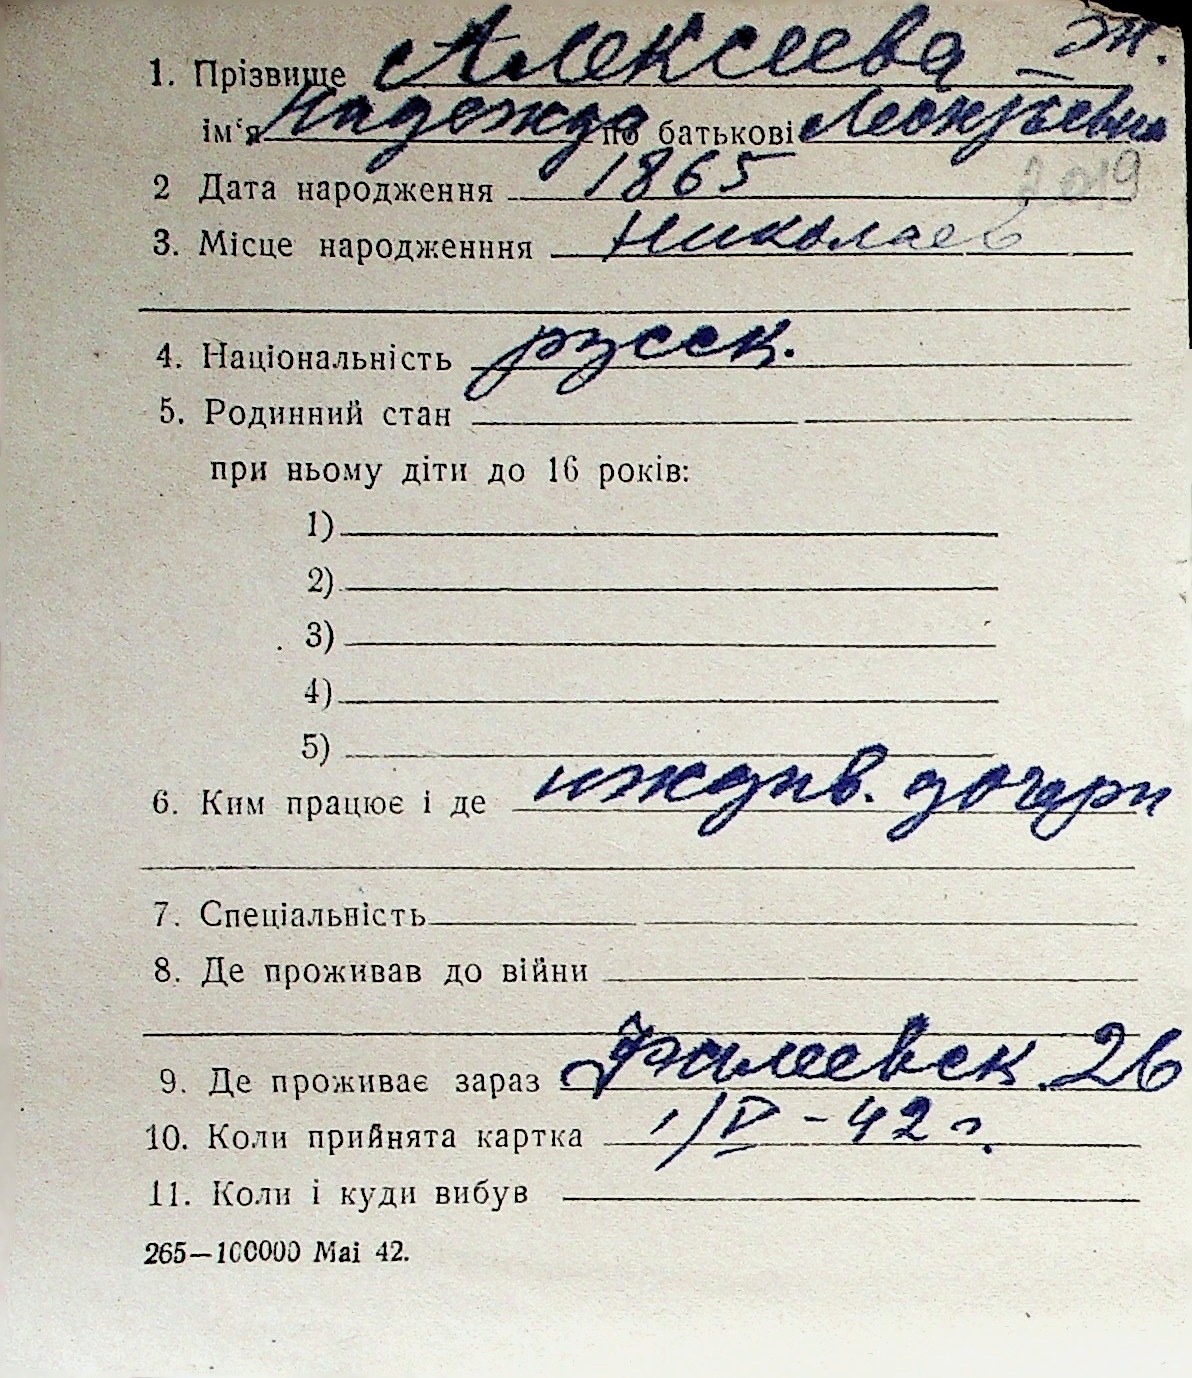 1. Прізвище Алексеева ж.
ім‘я Надежда по батькові Леонтьевна
2 Дата народження 1865 2019
3. Місце народженння Николаев
4. Національність русск.
5. Родинний стан
при ньому діти до 16 років:
1)
2)
3)
4)
5)
6. Ким працює і де иждив. дочери
7. Спеціальність
8. Де проживав до війни
9. Де проживає зараз Фалеевск. 26
10. Коли прийнята картка 1/V - 42 г.
11. Коли і куди вибув
265—100000 Mai 42.